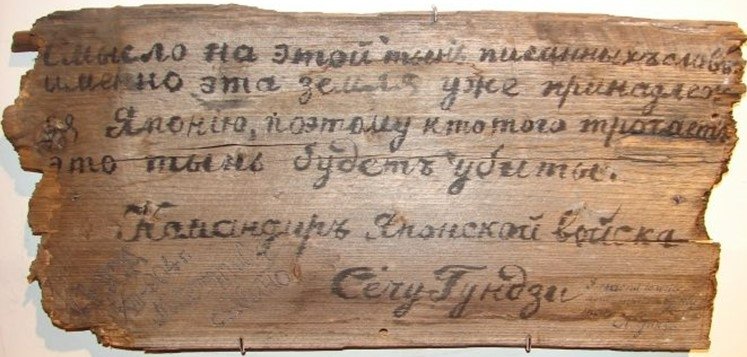 Смысло на этой тынь писанныхъ словъ
именно эта земля уже принадлеж
ея Японію, поэтому ктотого трогаетъ
это тынь будетъ убиты.
Командиръ Японской войска
Сечу Гундзи